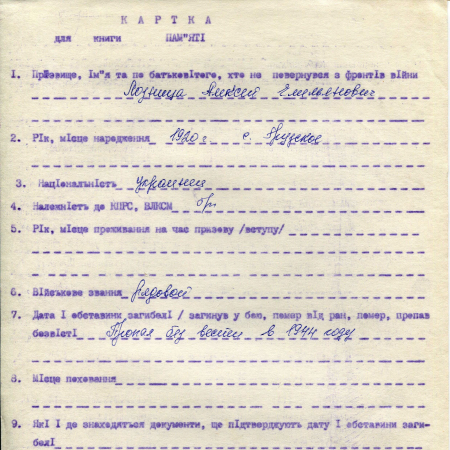 КАРТКА
для книги ПАМ"ЯТІ
1. Прізвище, ім"я та по батьковітого, хто не повернувся з фронтів війни
Лозница Алексей Емельянович
2. Рік, місце народження 1920 г с. Грузское
3. Національність украинец
4. Належність до КПРС, ВЛКСМ
5. Рік, місце проживання на час призову /вступу/
6. Військове звання Рядовой
7. Дата і обставини загибелі / загинув у бою, помер від ран, помер, пропав
безвісті Пропал без вести в 1944 году
8. Місце поховання
9. Які і де знаходяться документи, що підтверджують дату і обставини заги-
белі